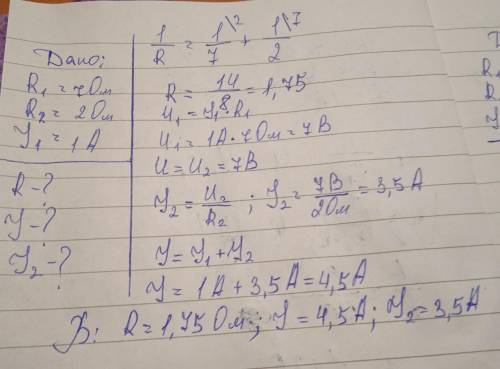 Дано:
R₁ = 7 Ом
R₂ = 2 Ом
У₁ = 1 А
R - ?
У - ?
У₂ - ?
1/R = 1\2/7 + 1\7/2
R = 14/8 = 1,75
U₁ = У₁ · R₁
U₁ = 1А · 7 Ом = 7 В
U = U₂ = 7В
У₂ = U₂/R₂ ; У₂ = 7В/2Ом = 3,5 А
У = У₁ + У₂
У = 1А + 3,5А = 4,5А
В: R = 1,75 Ом; У = 4,5А; У₂ = 3,5А